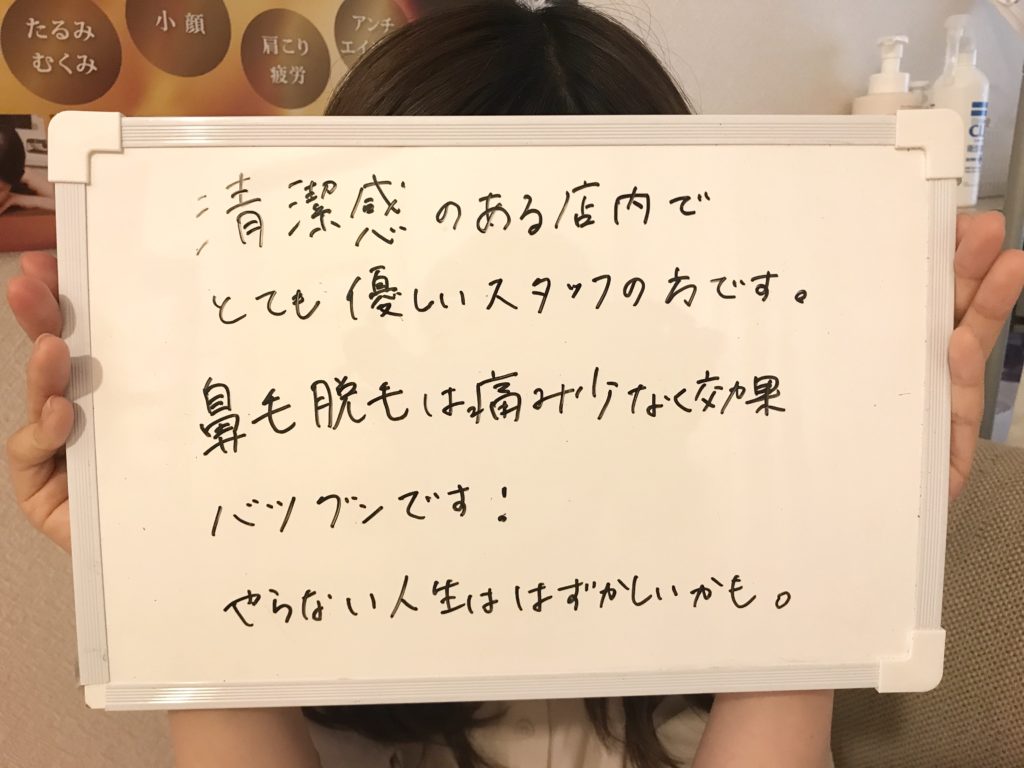 たるみ
むくみ
小顔
肩こり
疲労
アンチ
清潔感のある店内で
とても優しいスタッフの方です。
鼻毛脱毛は痛み少なく効果
バツグンです!
やらない人生ははずかしいかも。